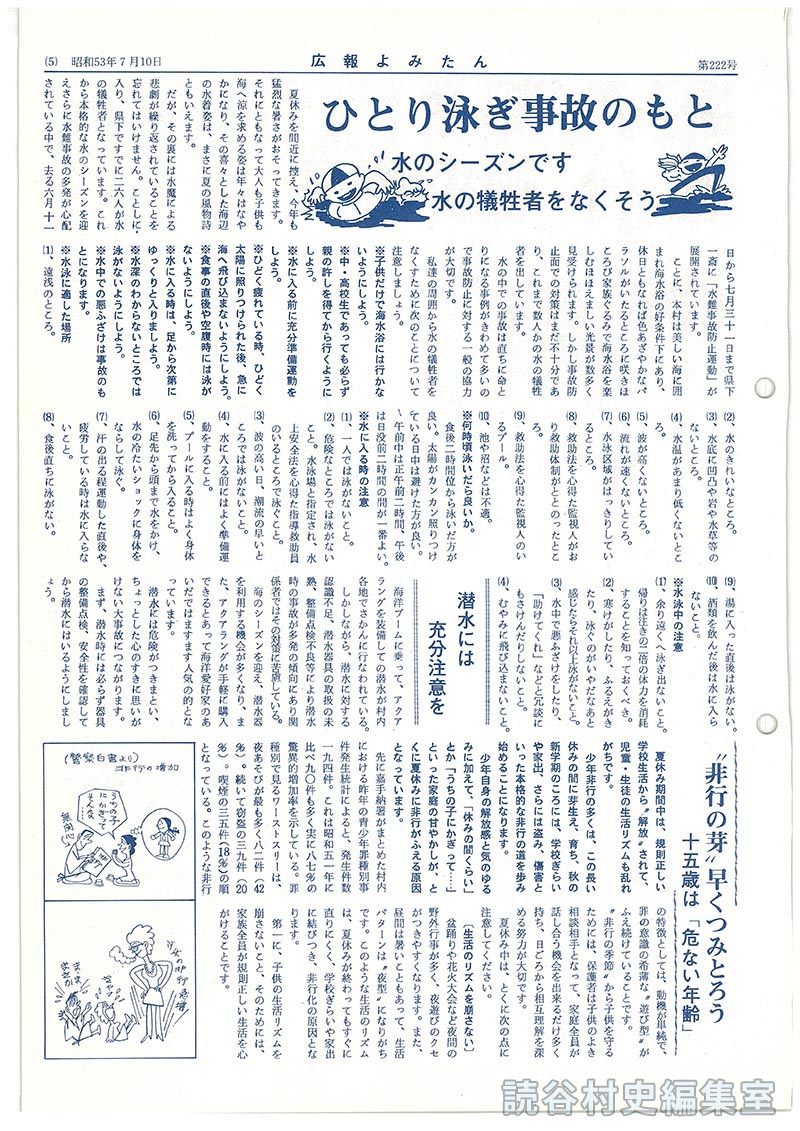 (5) 昭和53年7月10日
広報よみたん
第222号
ひとり泳ぎ事故のもと
水のシーズンです
水の犠牲者をなくそう
夏休みを間近に控え、今年も
猛烈な暑さがおそってきます。
それにともなって大人も子供も
海へ涼を求める姿は年々はなや
かになり、その喜々とした海辺
の水着姿は、まさに夏の風物詩
ともいえます。
だが、その裏には水魔による
悲劇が繰り返されていることを
忘れてはいけません。ことしに
入り、県下ですでに二六人が水
の犠牲者となっています。これ
から本格的な水のシーズンを迎
えさらに水難事故の多発が心配
されている中で、去る六月十一
日から七月三十一日まで県下
一斉に「水難事故防止運動」が
展開されています。
ことに、本村は美しい海に囲
まれ海水浴の好条件下にあり、
休日ともなれば色あざやかなパ
ラソルがいたるところに咲きほ
ころび家族ぐるみで海水浴を楽
しむほほえましい光景が数多く
見受けられます。しかし事故防
止面での対策はまだ不十分であ
り、これまで数人かの水の犠牲
者を出しています。
水の中での事故は直ちに命と
りになる事例がきわめて多いの
で事故防止に対する一般の協力
が大切です。
私達の周囲から水の犠牲者を
なくすために次のことについて
注意しましょう。
※子供だけで海水浴には行かな
いようにしよう。
※中・高校生であっても必らず
親の許しを得てから行くように
しよう。
※水に入る前に充分準備運動を
しよう。
※ひどく疲れている時、ひどく
太陽に照りつけられた後、急に
海へ飛び込まないようにしよう。
※食事の直後や空腹時には泳が
ないようにしよう。
※水に入る時は、足から次第に
ゆっくりと入りましょう。
※水深のわからないところでは
泳がないようにしよう。
※水中での悪ふざけは事故のも
とになります。
※水泳に適した場所
(1)、遠浅のところ。
(2)、水のきれいなところ。
(3)、水底に凹凸や岩や水草等の
ないところ。
(4)、水温があまり低くないとこ
ろ。
(5)、波が高くないところ。
(6)、流れが速くないところ。
(7)、水泳区域がはっきりしてい
るところ。
(8)、救助法を心得た監視人がお
り救助体制がととのったとこ
ろ。
(9)、救助法を心得た監視人のい
るプール。
(10)、池や沼などは不適。
※何時頃泳いだら良いか。
食後二時間位から泳いだ方が
良い。太陽がカンカン照りつけ
ている日中は避けた方が良い。
〜午前中は正午前二時間、午後
は日没前二時間の間が一番よい。
※水に入る時の注意
(1)、一人では泳がないこと。
(2)、危険なところでは泳がない
こと。水泳場と指定され、水
上安全法を心得た指導救助員
のいるところで泳ぐこと。
(3)、波の高い日、潮流の早いと
ころでは泳がないこと。
(4)、水に入る前にはよく準備運
動をすること。
(5)、プールに入る時はよく身体
を洗ってから入ること。
(6)、足先から頭まで水をかけ、
水の冷たいショックに身体を
ならして泳ぐ。
(7)、汗の出る程運動した直後や、
疲労している時は水に入らな
いこと。
(8)、食後直ちに泳がない。
(9)、湯に入った直後は泳がない。
(10)、酒類を飲んだ後は水に入ら
ないこと。
※水泳中の注意
(1)、余り遠くへ泳ぎ出ないこと。
帰りは注きの二倍の体力を消耗
することを知っておくべき。
(2)、寒けがしたり、ふるえがき
たり、泳ぐのがいやだなあと
感じたらそれ以上泳がないこと。
(3)、水中で悪ふざけをしたり、
「助けてくれ」などと冗談に
もさけんだりしないこと。
(4)、むやみに飛び込まないこと。
潜水には
充分注意を
海洋ブームに乗って、アクア
ラングを装備しての潜水が村内
各地でさかんに行なわれている。
しかしながら、潜水に対する
認識不足、潜水器具の取扱の未
熟、整備点検不良等により潜水
時の事故が多発の傾向にあり関
係者ではその対策に苦慮している。
海のシーズンを迎え、潜水器
を利用する機会が多くなり、ま
た、アクアラングが手軽に購入
できるとあって海洋愛好家のあ
いだではますます人気の的とな
っています。
潜水には危険がつきまとい、
ちょっとした心のすきに思いが
けない大事故につながります。
まず、潜水時には必らず器具
の整備点検、安全性を確認して
から潜水にはいるようにしまし
ょう。
〝非行の芽〟早くつみとろう
十五歳は「危ない年齢」
夏休み期間中は、規則正しい
学校生活から〝解放〟されて、
児童・生徒の生活リズムも乱れ
がちです。
少年非行の多くは、この長い
休みの間に芽生え、育ち、秋の
新学期のころには、学校ぎらい
や家出、さらには盗み、傷害と
いった本格的な非行の道を歩み
始めることになります。
少年自身の解放感と気のゆる
みに加えて、「休みの間くらい」
とか「うちの子にかぎって……」
といった家庭の甘やかしが、と
くに夏休みに非行がふえる原因
となっています。
先に嘉手納署がまとめた村内
における昨年の青少年罪種別事
件発生統計によると、発生件数
一九四件。これは昭和五一年に
比べ九〇件も多く実に八七%の
驚異的増加率を示している。罪
種別で見るワーストスリーは、
夜あそびが最も多く八二件(42
%)。続いて窃盗の三九件(20
%)。喫煙の三五件(18%)の順
となっている。このような非行
の特徴としては、動機が単純で、
罪の意識の希薄な〝遊び型〟が
ふえ続けていることです。
〝非行の季節〟から子供を守る
ためには、保護者は子供のよき
相談相手となって、家庭全員が
話し合う機会を出来るだけ多く
持ち、日ごろから相互理解を深
める努力が大切です。
夏休み中は、とくに次の点に
注意してください。
〔生活のリズムを崩さない〕
盆踊りや花火大会など夜間の
野外行事が多く、夜遊びのクセ
がつきやすくなります。また、
昼間は暑いこともあって、生活
パターンは〝夜型〟になりがち
です。このような生活のリズム
は、夏休みが終わってもすぐに
直りにくく、学校ぎらいや家出
に結びつき、非行化の原因とな
ります。
第一に、子供の生活リズムを
崩さないこと、そのためには、
家族全員が規則正しい生活を心
がけることです。
(警察白書より)
非行の増加
うちの子
にかぎって
そんな…
無関心
少女の非行急増
読谷村史編集室